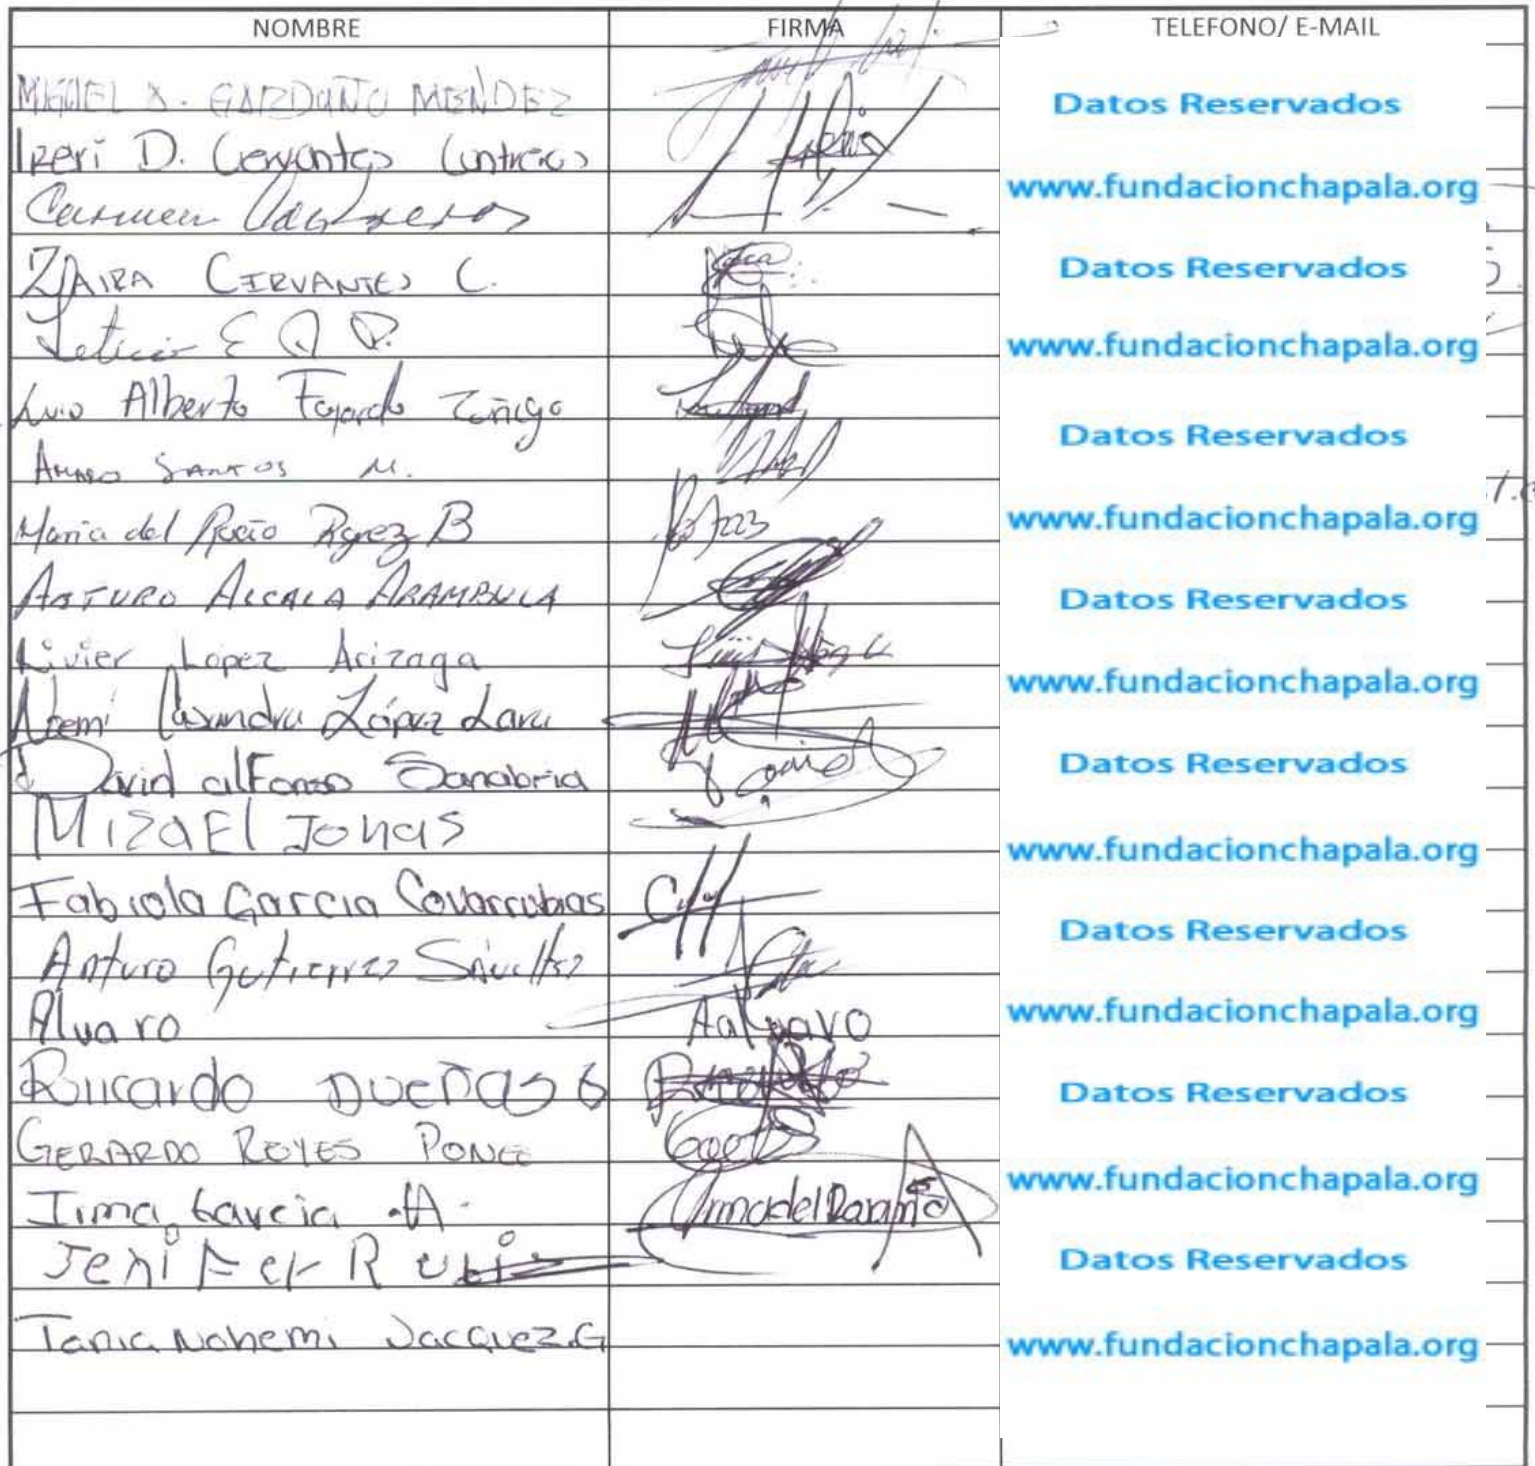 NOMBRE FIRMA TELEFONO/ E-MAIL
MIGUEL A. GARDUÑO MENDEZ Datos Reservados
Ireri D. Cervantes Contreras
Carmen www.fundacionchapala.org
ZAIRA CERVANTES C. Datos Reservados
Leticia E www.fundacionchapala.org
Luis Alberto Fajardo Zuñiga
Datos Reservados
AMARO SANTOS M.
Maria del Rocio B www.fundacionchapala.org
ARTURO ALCALA ARAMBULA Datos Reservados
Livier López Arizaga www.fundacionchapala.org
Noemi Casandra López Lara
David alFonso Sanabria Datos Reservados
MisaEl Jonas www.fundacionchapala.org
Fabiola Garcia Covarrubias Datos Reservados
Arturo Gutierrez
Alvaro www.fundacionchapala.org
Ricardo DUEÑAS G Datos Reservados
GERARDO REYES PONCE
Irma Garcia A. www.fundacionchapala.org
Jenifer Rubi Datos Reservados
Tania Nohemi Jacquez.G www.fundacionchapala.org